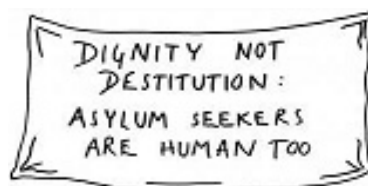 DIGNITY NOT
DESTITUTION:
ASYLUM SEEKERS
ARE HUMAN TOO